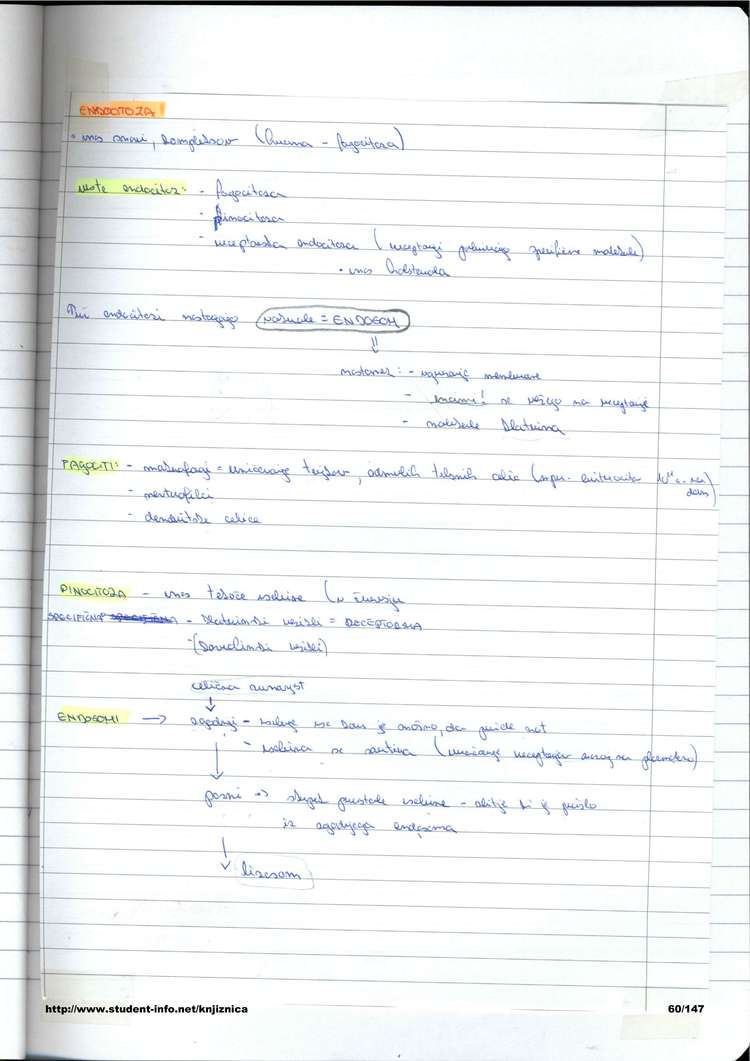 ENDOCITOZA!
• vnos snovi, kompleksov (hrana - fagocitoza)
vrste endocitoz: - fagocitoza
- pinocitoza
- receptorska endocitoza (receptorji prepoznajo specifične molekule)
• vnos holesterola
Pri endocitozi nastajajo vezikule = ENDOSOM
nastanek: - ugrezanje membrane
- snovi! se vežejo na receptorje
- molekule klatrina
FAGOCITI: - makrofagi = uničevanje tujkov, odmrlih telesnih celic (npr. eritrocitov 10¹¹ c. na dan)
- nevtrofilci
- dendritske celice
PINOCITOZA - vnos tekoče vsebine
SPECIFIČNA - klatrinski vezikli = RECEPTORSKA
- (kaveolinski vezikli)
celična
ENDOSOMI → zgodnji - vsebuje vse kar je možno, da pride not
- vsebina se sortira (vračanje receptorjev nazaj na plazmalemo)
pozni → skupek preostale vsebine - ki je prišlo
iz zgodnjega endosoma
lizosom
http://www.student-info.net/knjiznica
60/147